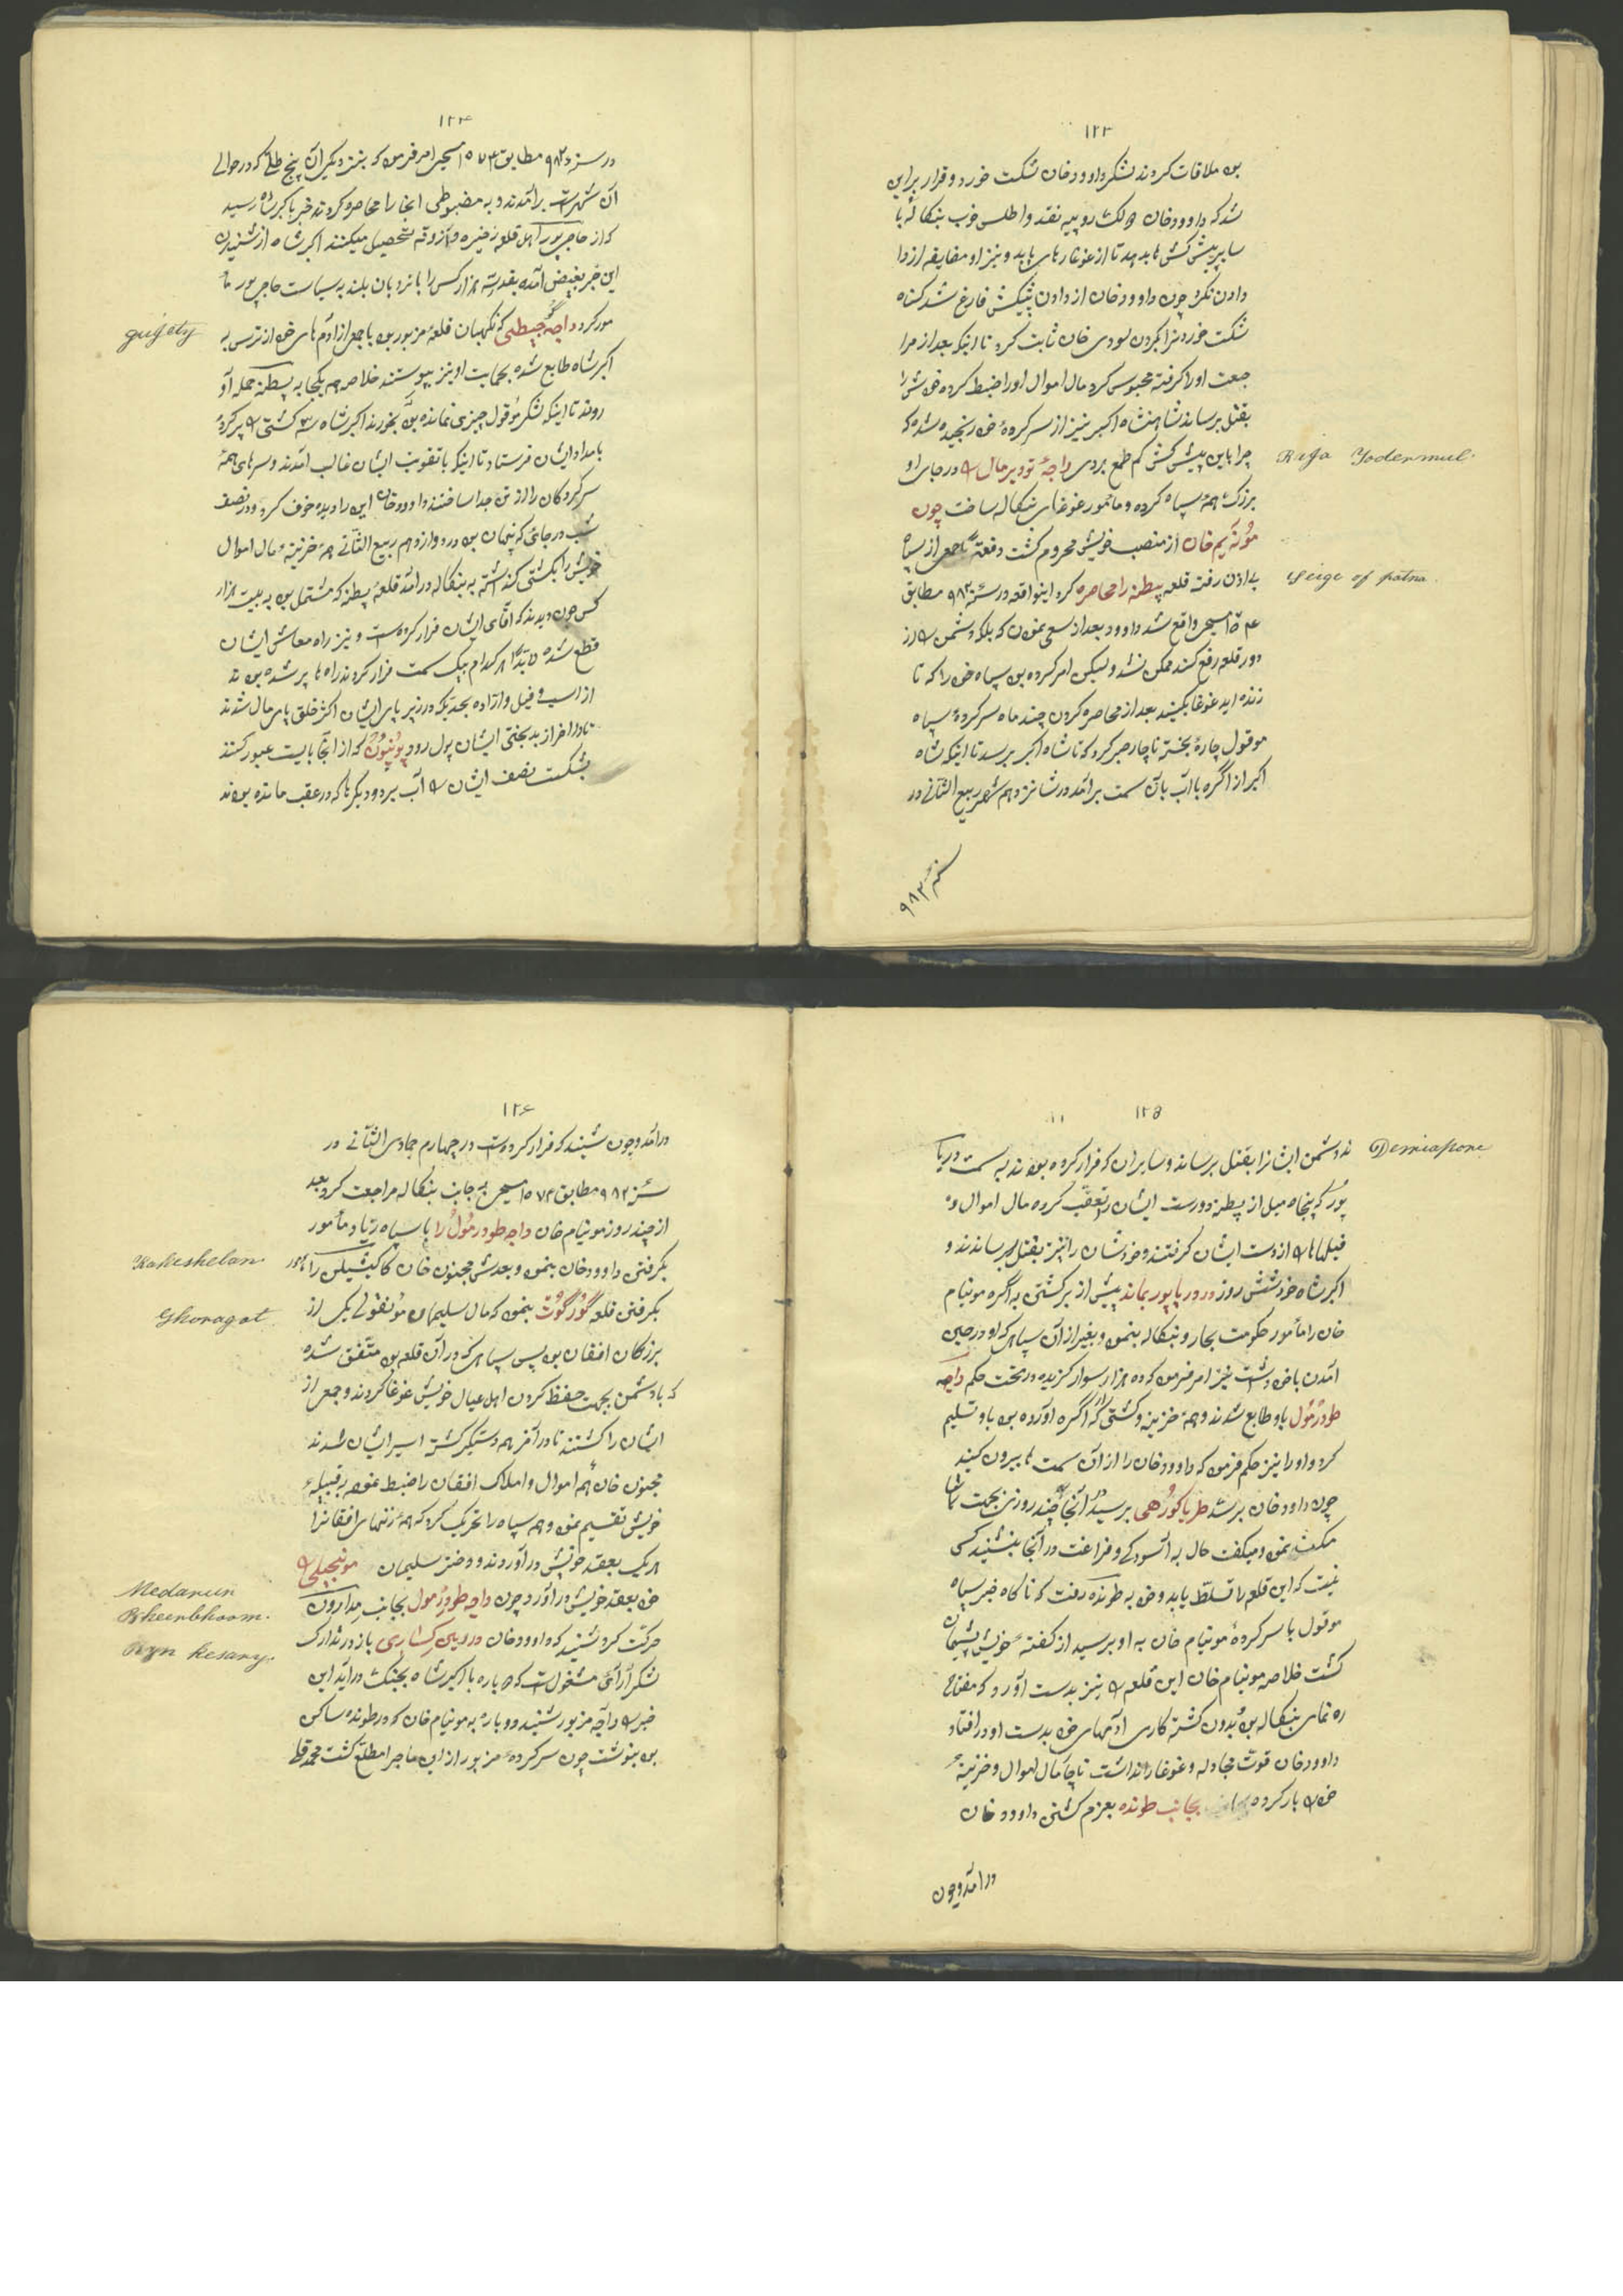 ١٢٣
بود ملاقات کردند لشکر داوود خان شکست خورد و قرار بر این
شد که داوود خان لک روپیه نقد و اطلس خوب بنکاله با
سایر پیش کش ها بدهد تا از غوغا رهایی یابد و نیز او مضایقه از دا
دادن نکرد چون داوود خان از دادن پیشکش فارغ شد کناه
شکست خوردنرا بکردن لودی خان ثابت کرد تا اینکه بعد از مرا
جعت او را کرفته محبوس کرد مال اموال او را ضبط کرده خودش را
بقتل برساند شاهنشاه اکبر نیز از سرکرده خود رنجیده شد که
چرا باین پیش کش کم طمع بردی راجهٔ تودیرمال را در جای او
Raja Yodermul.
بزرک همهٔ سپاه کرده و مأمور غوغای بنکاله ساخت چون
مؤنیم خان از منصب خویش محروم کشت دفعةً با جمعی از سپاه
بی اذن رفته قلعه پطنه را محاصره کرد اینواقعه در سنهٔ ٩٨٢ مطابق
seige of patna.
مسیحی واقع شد داوود بعد از سعی نمودن که بلکه دشمن را از
دور قلعه رفع کند ممکن نشد ولیکن امر کرده بود سپاه خود را که تا
زنده اید غوغا بکنید بعد از محاصره کردن چند ماه سرکردهٔ سپاه
موقول چارهٔ بجز ناچار صبر کرد که تا شاه اکبر برسد تا اینکه شاه
اکبر از اگره با آب بآن سمت برآمد در شانزدهم شهر ربیع الثانی در
سنهٔ ٩٨٢
١٢٤
در سنه ٩٨٢ مطابق ١٥٧٤ مسیحی امر فرمود که بنزدیکی آن پنج طپه که در حوالی
آن شهر است برآمدند و به مضبوطی انجا را محاصره کردند خبر باکبر شاه رسید
که از حاجی پور اهل قلعه ذخیره و آزوقه تحصیل میکنند اکبر شاه از شنیدن
این خبر بغیض آمده بقدر سه هزار کس را با نردبان بلند به سیاست حاجی پور ما
مور کرد راجه کجپطی که نکهبان قلعهٔ مزبور بود با جمعی از آدمهای خود از ترس به
gujety
اکبر شاه طابع شده بحمایت او نیز پیوستند خلاصه هم یکجا به پطنه حمله آو
روند تا اینکه لشکر موقول چیزی نمانده بود بخورند اکبر شاه سه کشتی را پر کرده
بامداد ایشان فرستاد تا اینکه با تقویت ایشان غالب آمدند و سرهای همهٔ
سرکردکان را از تن جدا ساختند داوود خان این را دیده خوف کرد و در نصف
شب در جائی که پنهان بود در دوازدهم ربیع الثانی همهٔ خزینه و مال اموال
خویش را بکشتی کذاشته به بنکاله درآمد قلعهٔ پطنه که مشتمل بود به بیست هزار
کس چون دیدند که آقای ایشان فرار کرده است و نیز راه معاش ایشان
قطع شده لابداً هر کدام بیک سمت فرار کردند راه ها پر شده بود ند
از اسب و فیل و اراده بحدیکه در زیر پای ایشان اکثر خلق پای مال شدند
تا در آخر از بدبختی ایشان پول رود پونپون که از آنجا بایست عبور کنند
بشکست نصف ایشان را آب برد و دیکرها که در عقب مانده بودند
١٢٥
دشمن ایشانرا بقتل برساند و سایران که فرار کرده بودند به سمت دریا
Demiapone
پور که پنجاه میل از پطنه دور است ایشان را تعقب کرده مال اموال و
فیلها را از دست ایشان کرفتند و خودشان را نیز بقتل برساندند و
اکبر شاه خود شش روز در دریاپور بماند پیش از برکشتن به اگره مونیام
خان را مأمور حکومت بحار و بنکاله بنمود و بغیر از آن سپاهی که او در حین
آمدن با خود داشت نیز امر فرمود که ده هزار سوار کزیده در تحت حکم راجه
طودرمول باو طابع شدند و همهٔ خزینه و کشتی که از اگره آورده بود باو تسلیم
کرد و او را نیز حکم فرمود که داوود خان را از آن سمت ها بیرون کنید
چون داوود خان برسید طریاکورهی برسید در آنجا چند روز نیز بجهت تماشا
مکث نمود و میکفت حال به آسودکی و فراغت در آنجا بنشیند کسی
نیست که این قلعه را تسلط یابد و خود به طونده رفت که ناکاه خبر سپاه
موقول با سرکردهٔ مونیام خان به او برسید از کفتهٔ خویش پشیمان
کشت خلاصه مونیام خان این قلعه را نیز بدست آورد که مفتاح
ره نمای بنکاله بود بدون کشته کاری آدمهای خود بدست او در افتاد
داوود خان قوت مجادله و غوغا را نداشت ناچار مال اموال و خزینهٔ
خود را بار کرده بجانب طونده بعزم کشتی داوود خان
درآمد و چون
١٢٦
درآمد و چون شنید که فرار کرده است در چهارم جمادی الثانی در
سنهٔ ٩٨٢ مطابق ١٥٧٤ مسیحی به جانب بنکاله مراجعت کرد بعد
از چند روز مونیام خان راجه طودرمول را با سپاه زیاد مأمور
بکرفتن داوود خان بنمود و بعدش مجنون خان کاکیشیلن را مأمور
Kakeshelan.
بکرفتن قلعه گورگوت بنمود که مال سلیمان مونقولی یکی از
Ghoragat.
بزرکان افغان بود پس سپاهی که در آن قلعه بود متفق شده
که با دشمن بجهت حفظ کردن اهل عیال خویش غوغا کردند و جمعی از
ایشان را کشتند تا در آخر همه دستکیر کشته اسیر ایشان شدند
مجنون خان همه اموال و املاک افغان را ضبط نموده به قبیلهٔ
خویش تقسیم نمود و همه سپاه را تحریک کرد که همهٔ زنهای افغانرا
هر یک بعقد خویش درآوردند و دختر سلیمان مونیجیلی را
خود بعقد خویش درآورد چون راجه طودرمول بجانب مدارون
Medarun
Bheerbhoom.
حرکت کرد شنید که داوود خان در رین کساری باز در تدارک
Ryn kesary.
لشکر آرائی مشغول است که دوباره با اکبر شاه بجنکش درآید این
خبر را راجه مزبور شنید دوباره به مونیام خان که در طونده ساکن
بود بنوشت چون سرکردهٔ مزبور از این ماجرا مطلع کشت محمد قلی